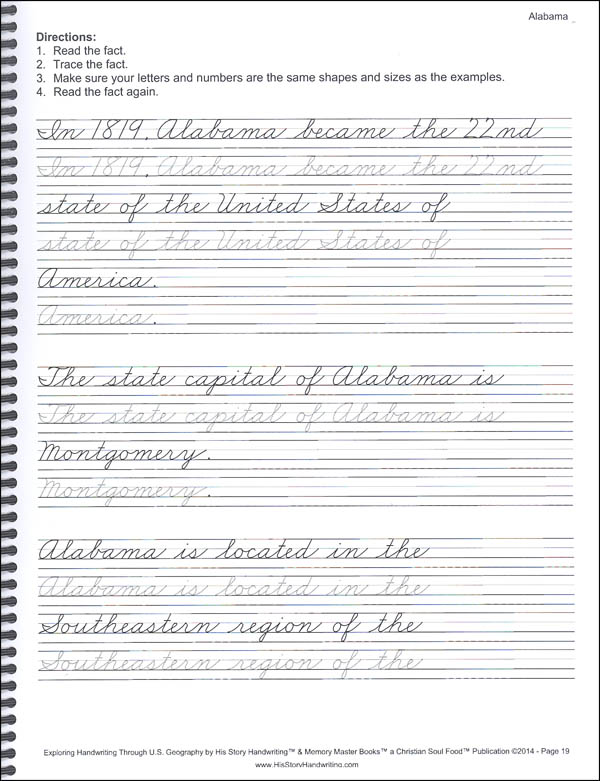 Alabama
Directions:
1. Read the fact.
2. Trace the fact.
3. Make sure your letters and numbers are the same shapes and sizes as the examples.
4. Read the fact again.
In 1819, Alabama became the 22nd
In 1819, Alabama became the 22nd
state of the United States of
state of the United States of
America.
America.
The state capital of Alabama is
The state capital of Alabama is
Montgomery.
Montgomery.
Alabama is located in the
Alabama is located in the
Southeastern region of the
Southeastern region of the
Exploring Handwriting Through U.S. Geography by His Story Handwriting™ & Memory Master Books™ a Christian Soul Food™ Publication ©2014 - Page 19
www.HisStoryHandwriting.com